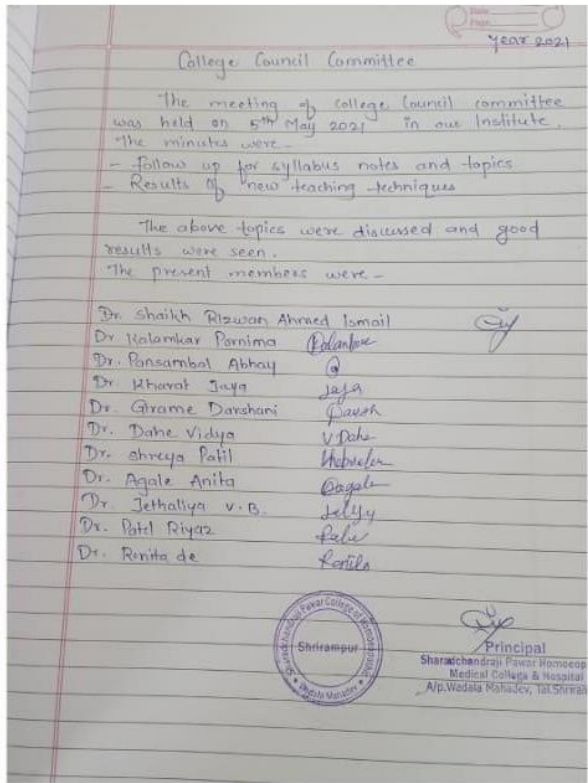 Date
Page
Year 2021
College Council Committee
The meeting of college Council committee
was held on 5th May 2021 in our Institute.
The minutes were -
- follow up for syllabus notes and topics
- Results of new teaching techniques
The above topics were discussed and good
results were seen.
The present members were -
Dr. Shaikh Rizwan Ahmed Ismail
Dr Kalamkar Pornima
Dr. Pansambal Abhay
Dr. Kharat Jaya Jaya
Dr. Girame Darshani
Dr. Dahe Vidya V Dahe
Dr. Shreya Patil
Dr. Agale Anita
Dr. Jethaliya V.B.
Dr. Patel Riyaz
Dr. Ronita de
Sharadchandraji Pawar College of Homoeopathy
Shrirampur
Wadala Mahadev
Principal
Sharadchandraji Pawar Homoeop
Medical College & Hospital
A/p.Wadala Mahadev, Tal.Shrira